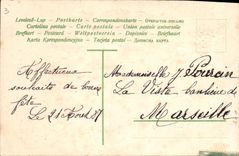 Levelező-Lap * Postkarte * Correspondenzkarte
Cartolina postale * Carte postale * Union postale universelle
Brefkort * Postcard * Weltpostverein * Dopisnice * Briefkaart
Karta Korespondencyjna * Tarjeta postal
Affectueux
souhaits de bonne
fête
Le 21
Mademoiselle J.
La Viste banlieue de
Marseille